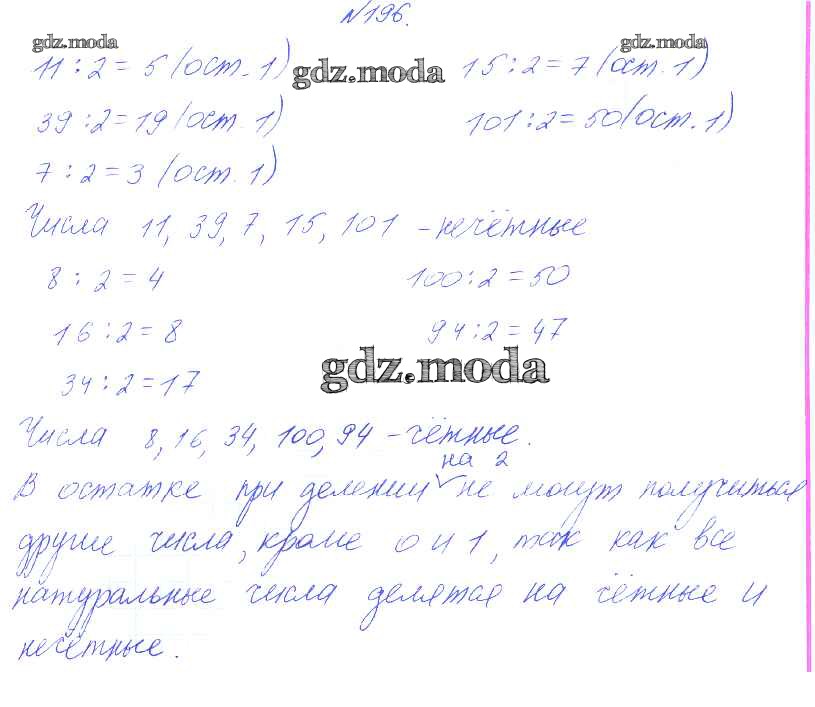 №196.
gdz.moda gdz.moda
11 : 2 = 5 (ост. 1) gdz.moda 15 : 2 = 7 (ост. 1)
39 : 2 = 19 (ост. 1) 101 : 2 = 50 (ост. 1)
7 : 2 = 3 (ост. 1)
Числа 11, 39, 7, 15, 101 - нечётные
8 : 2 = 4 100 : 2 = 50
16 : 2 = 8 94 : 2 = 47
gdz.moda
34 : 2 = 17
Числа 8, 16, 34, 100, 94 - чётные.
на 2
В остатке при делении не могут получиться
другие числа, кроме 0 и 1, так как все
натуральные числа делятся на чётные и
нечётные.